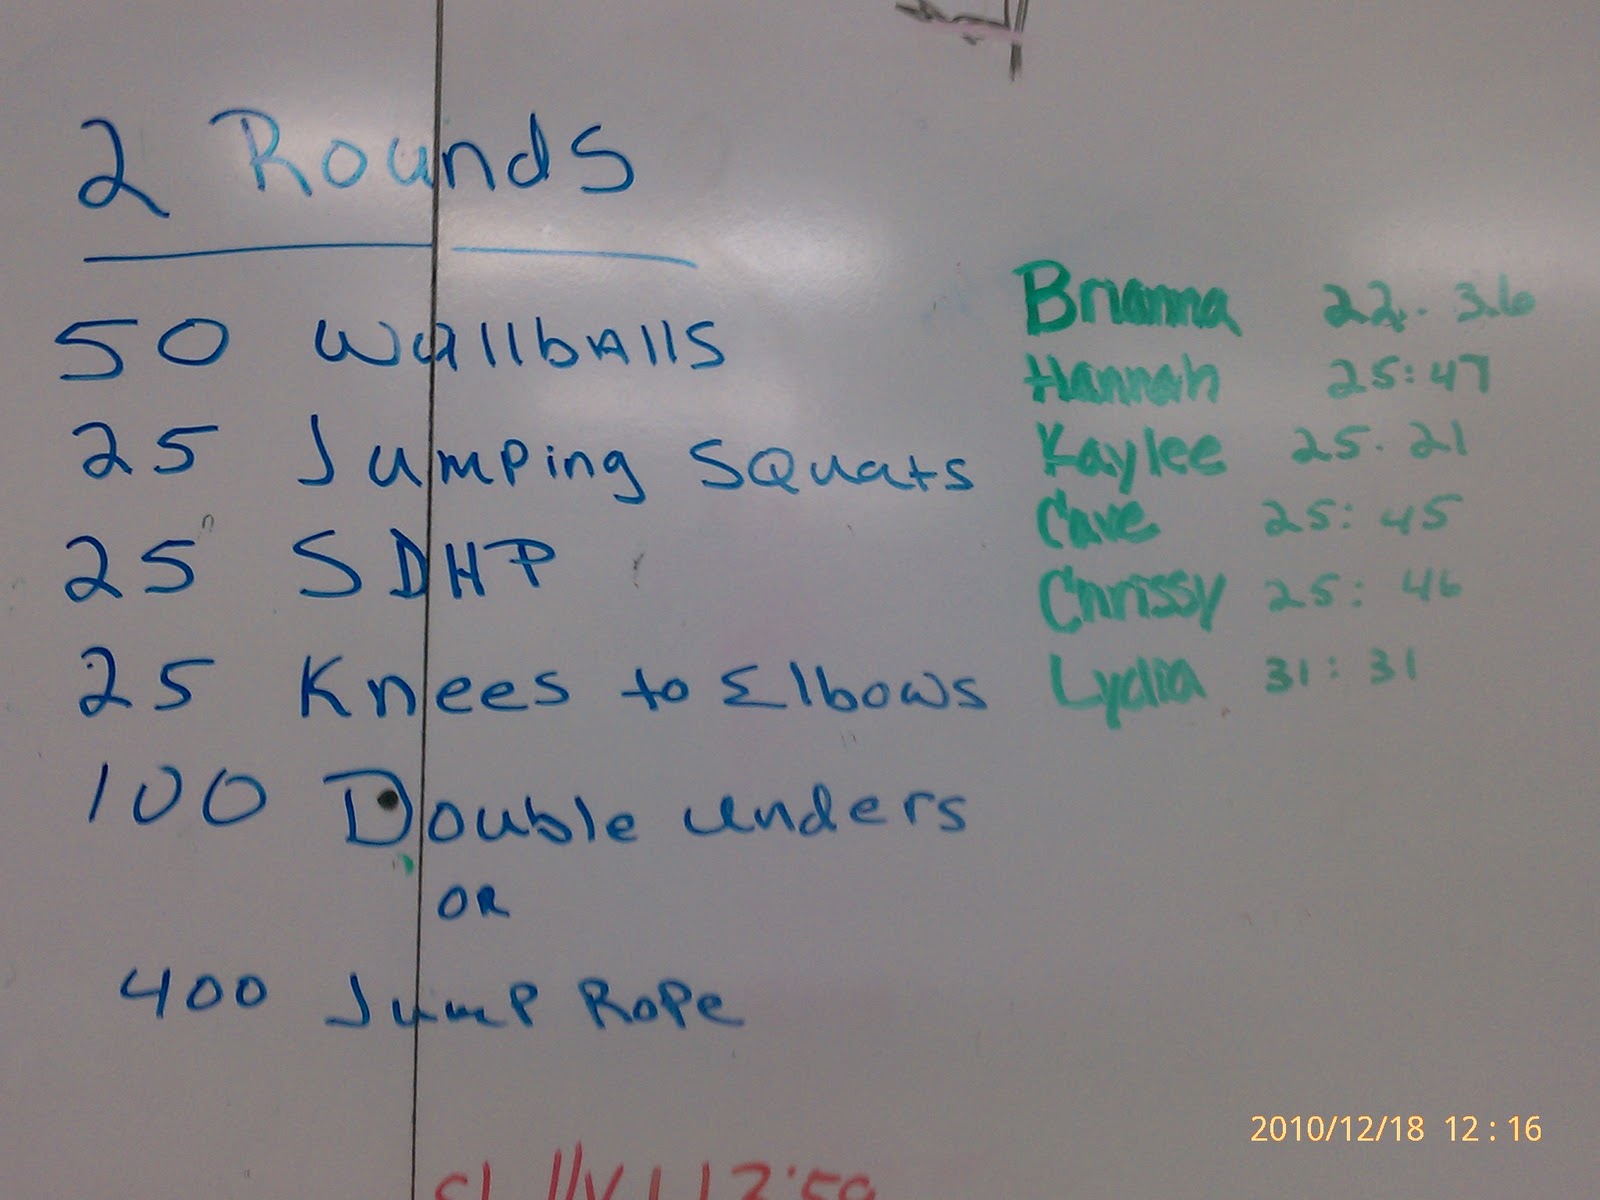 2 Rounds
50 Wallballs
25 Jumping Squats
25 SDHP
25 Knees to Elbows
100 Double unders
OR
400 Jump Rope
Brianna 22:36
Hannah 25:47
Kaylee 25:21
Cave 25:45
Chrissy 25:46
Lydia 31:31
2010/12/18 12:16